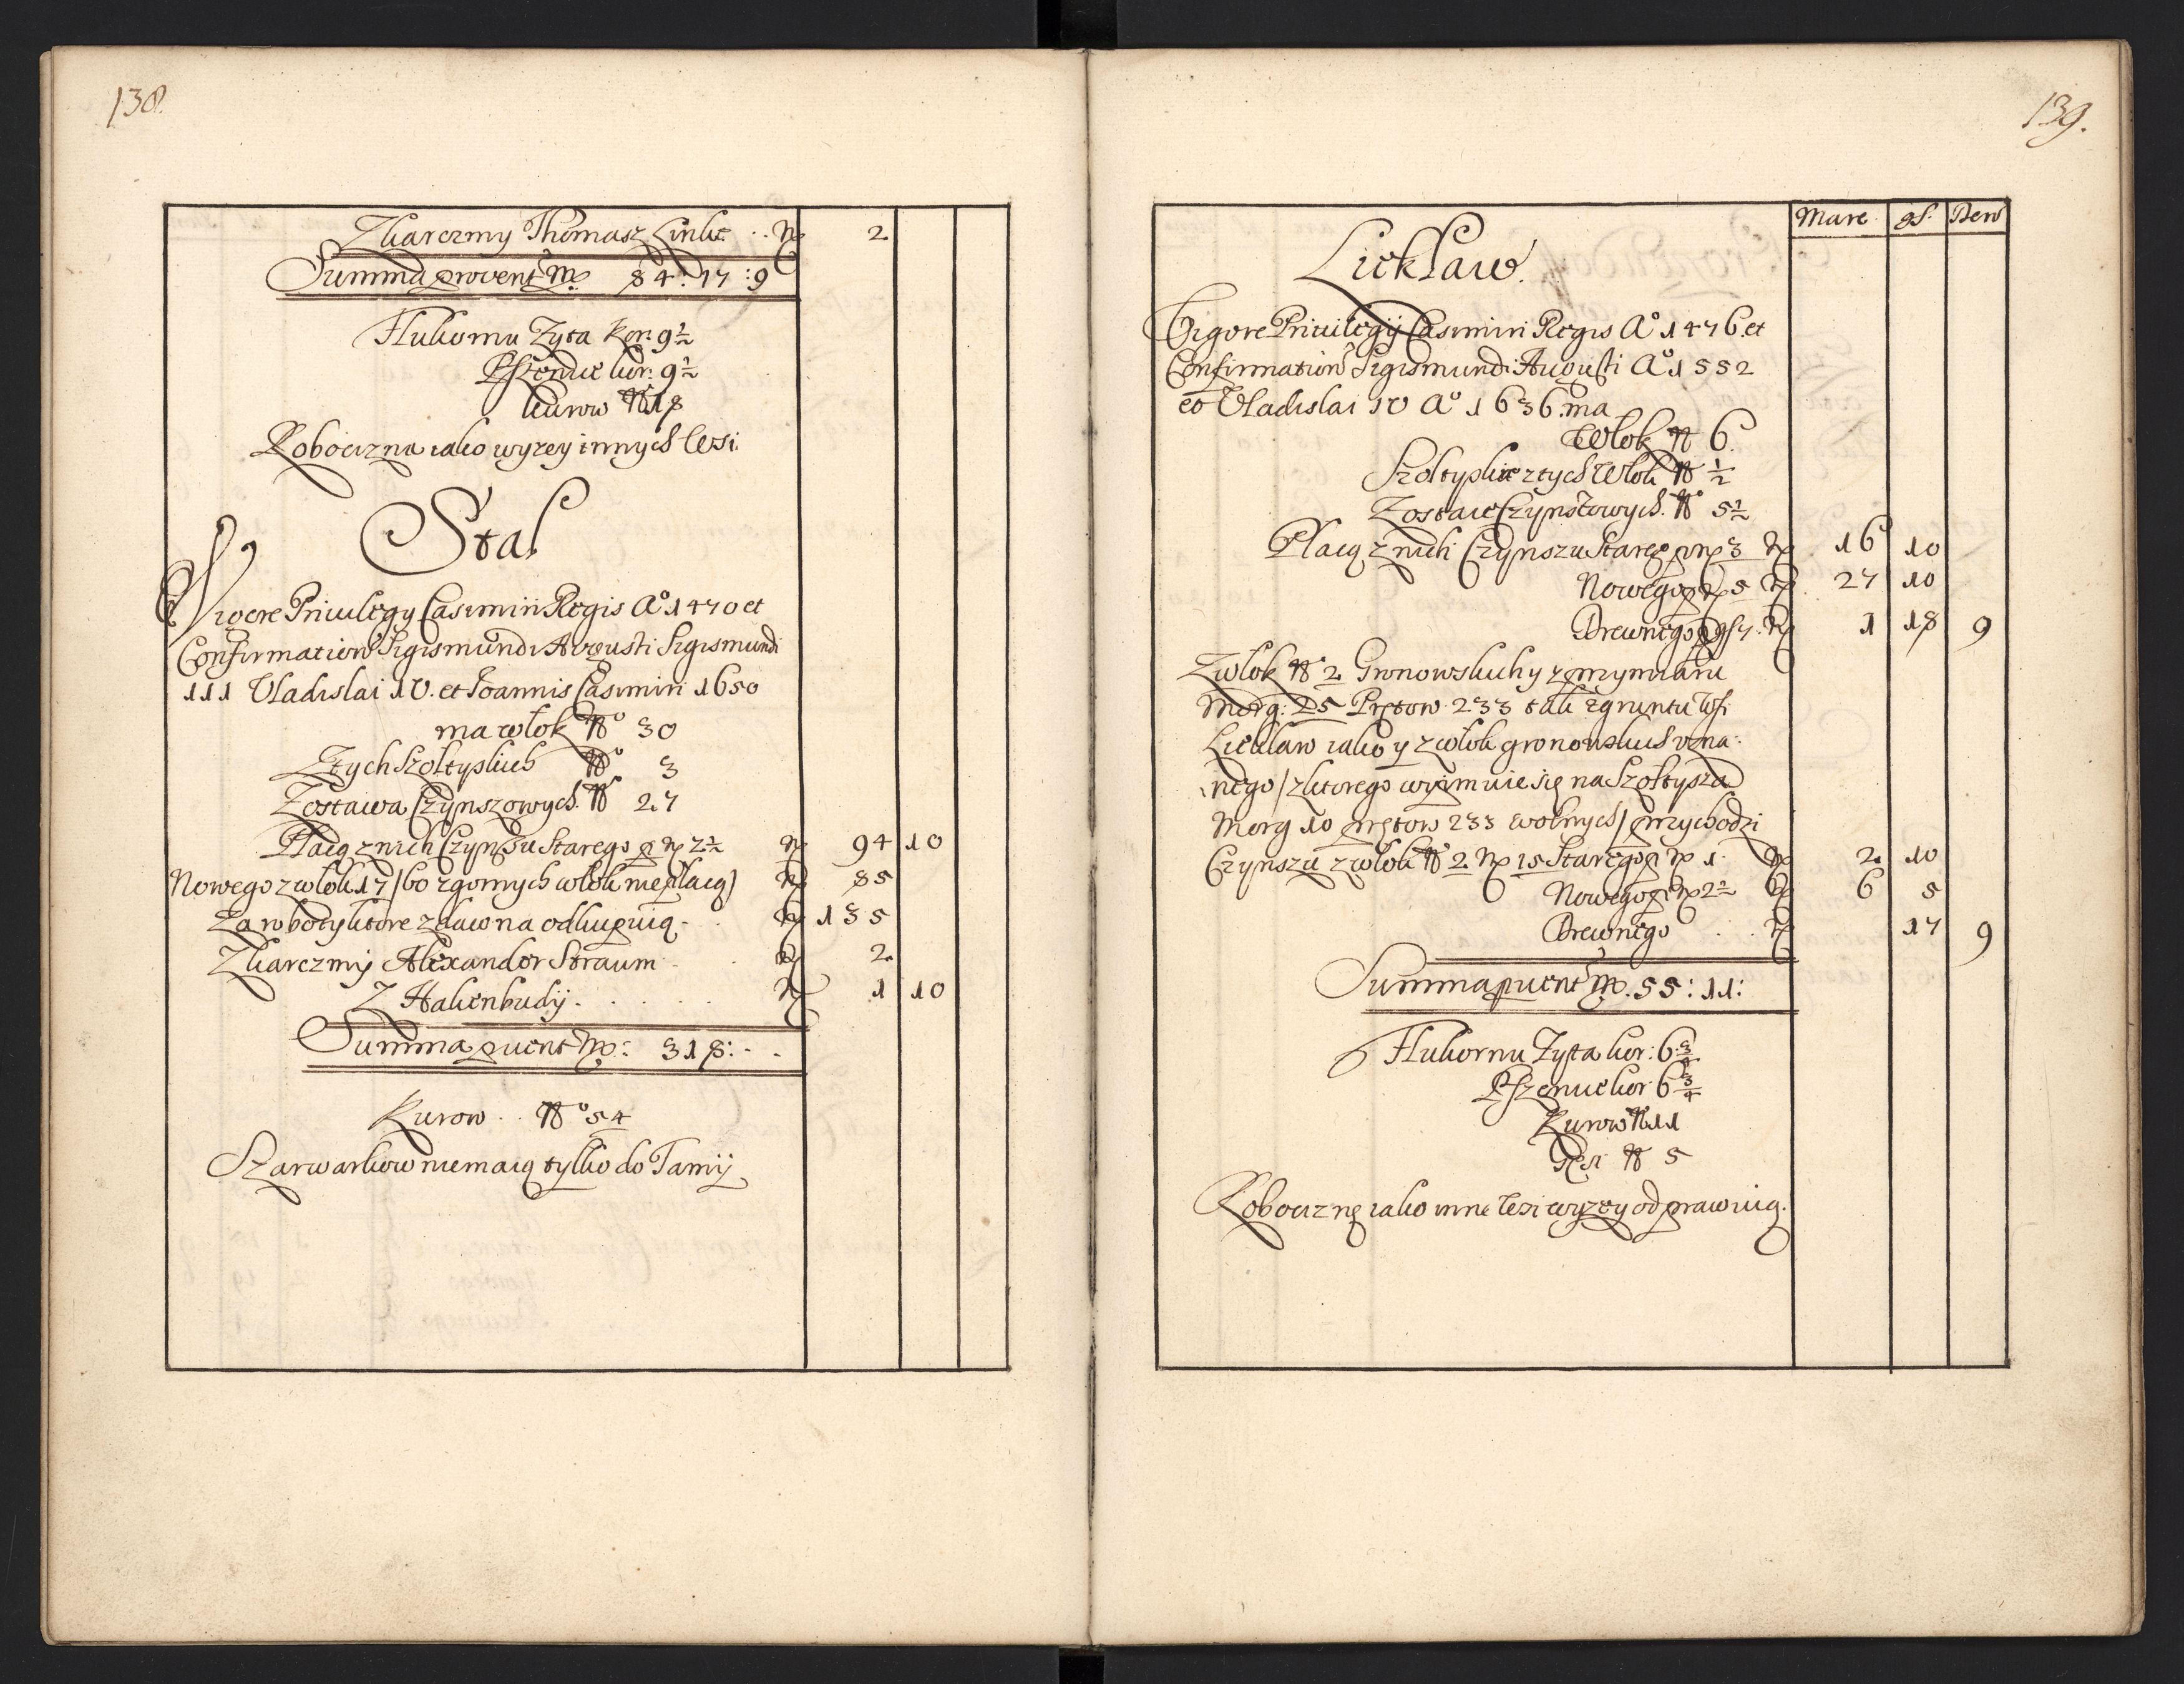 138.
Zkarczmy Thomasz Linke .. 2
Summa provent M. 84: 17: 9
Hukornu Zyta Kor: 9½
Pszenice kor: 9½
kurow No 18
Robocizna iako wyzey innych Wsi.
Stal
Vigore Privilegy Casimiri Regis Ao 1470 et
Confirmation Sigismundi Augusti Sigismundi
111 Vladislai 1V. et Joannis Casimiri 1650
ma wlok No 30
Ztych Szoltyskich No 3
Zostawa Czynszowych No 27
Placą znich Czynszu Starego p 2½ 94 10
Nowego zwlok 17 / bo zgornych wlok nie placą) 85
Za roboty ktore zdawna odkupuią - 135
Zkarczmy Alexander Straum - 2
Z Hakenbudy . . . . . 1 10
Summa puent M: 318: - .
Kurow . . No 54
Szarwarkow niemaią tylko do Tamy
139.
Marc gs. Den
Licklaw.
Vigore Privilegij Casimiri Regis Ao 1476 et
Confirmation Sigismundi Augusti Ao 1552
et Vladislai 1V Ao 1636. ma
Wlok No 6.
Szoltyskie ztych Wlok No ½
Zostaie Czynszowych No 5½
Placą znich Czynszu Stareg p 3 16 10
Nowego p 5 27 10
Drewnego p gs 7. 1 18 9
Zwlok No 2 Gronowskich y zprzymiaru
Morg: 25 Prętow 233 tak zgruntu Wsi
Licklaw iako y zwlok gronowskich
nego / zktorego wyimuie się na Szoltysza
Morg 10 prętow 233 wolnych / przychodzi
Czynszu zwlok No 2 15 Starego p 1. 2 10
Nowego p 2½ 6 5
Drewnego . . 17 9
Summa puent M. 55: 11:
Hukornu Zyta kor: 6¾
Pszenice kor 6¾
Kurow No 11
Gęsi No 5
Robociznę iako inne Wsi wyzey odprawuią.